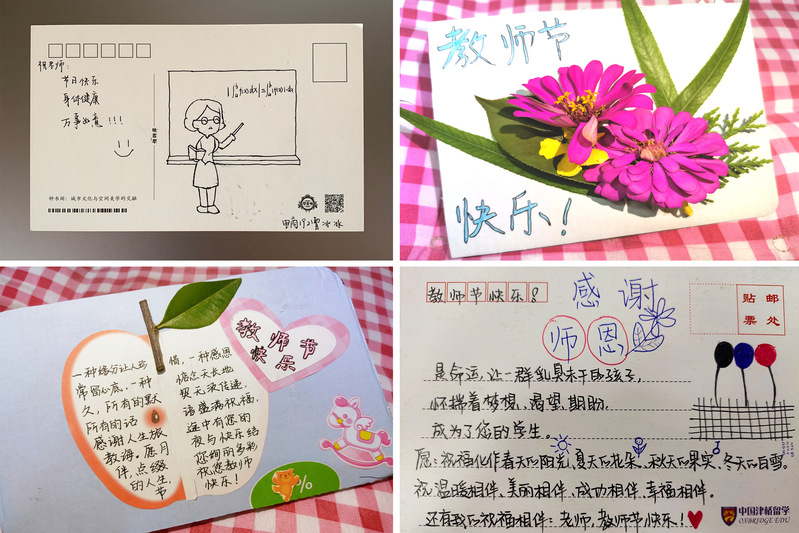 老师：
节日快乐
身体健康
万事如意！！！
钟书阁：城市文化与空间美学的交融
教师节
快乐！
教师节
快乐
一种缘分让人 情，一种感恩
常留心底，一种 惦念天长地
久，所有的默 契无须传递，
所有的话 语盛满祝福，
感谢人生旅 途中有您的
教诲。愿月 夜与快乐结
伴，点缀 您绚丽多彩
的人生。 祝您教师
节 快乐！
%
教师节快乐！
感谢
师恩
贴邮
票处
是命运，让一群乳臭未干的孩子，
怀揣着梦想、渴望、期盼，
成为了您的学生。
愿：祝福化作春天的阳光，夏天的花朵，秋天的果实，冬天的白雪。
祝温暖相伴、美丽相伴、成功相伴、幸福相伴。
还有我的祝福相伴：老师，教师节快乐！
中国津桥留学
OXBRIDGE EDU